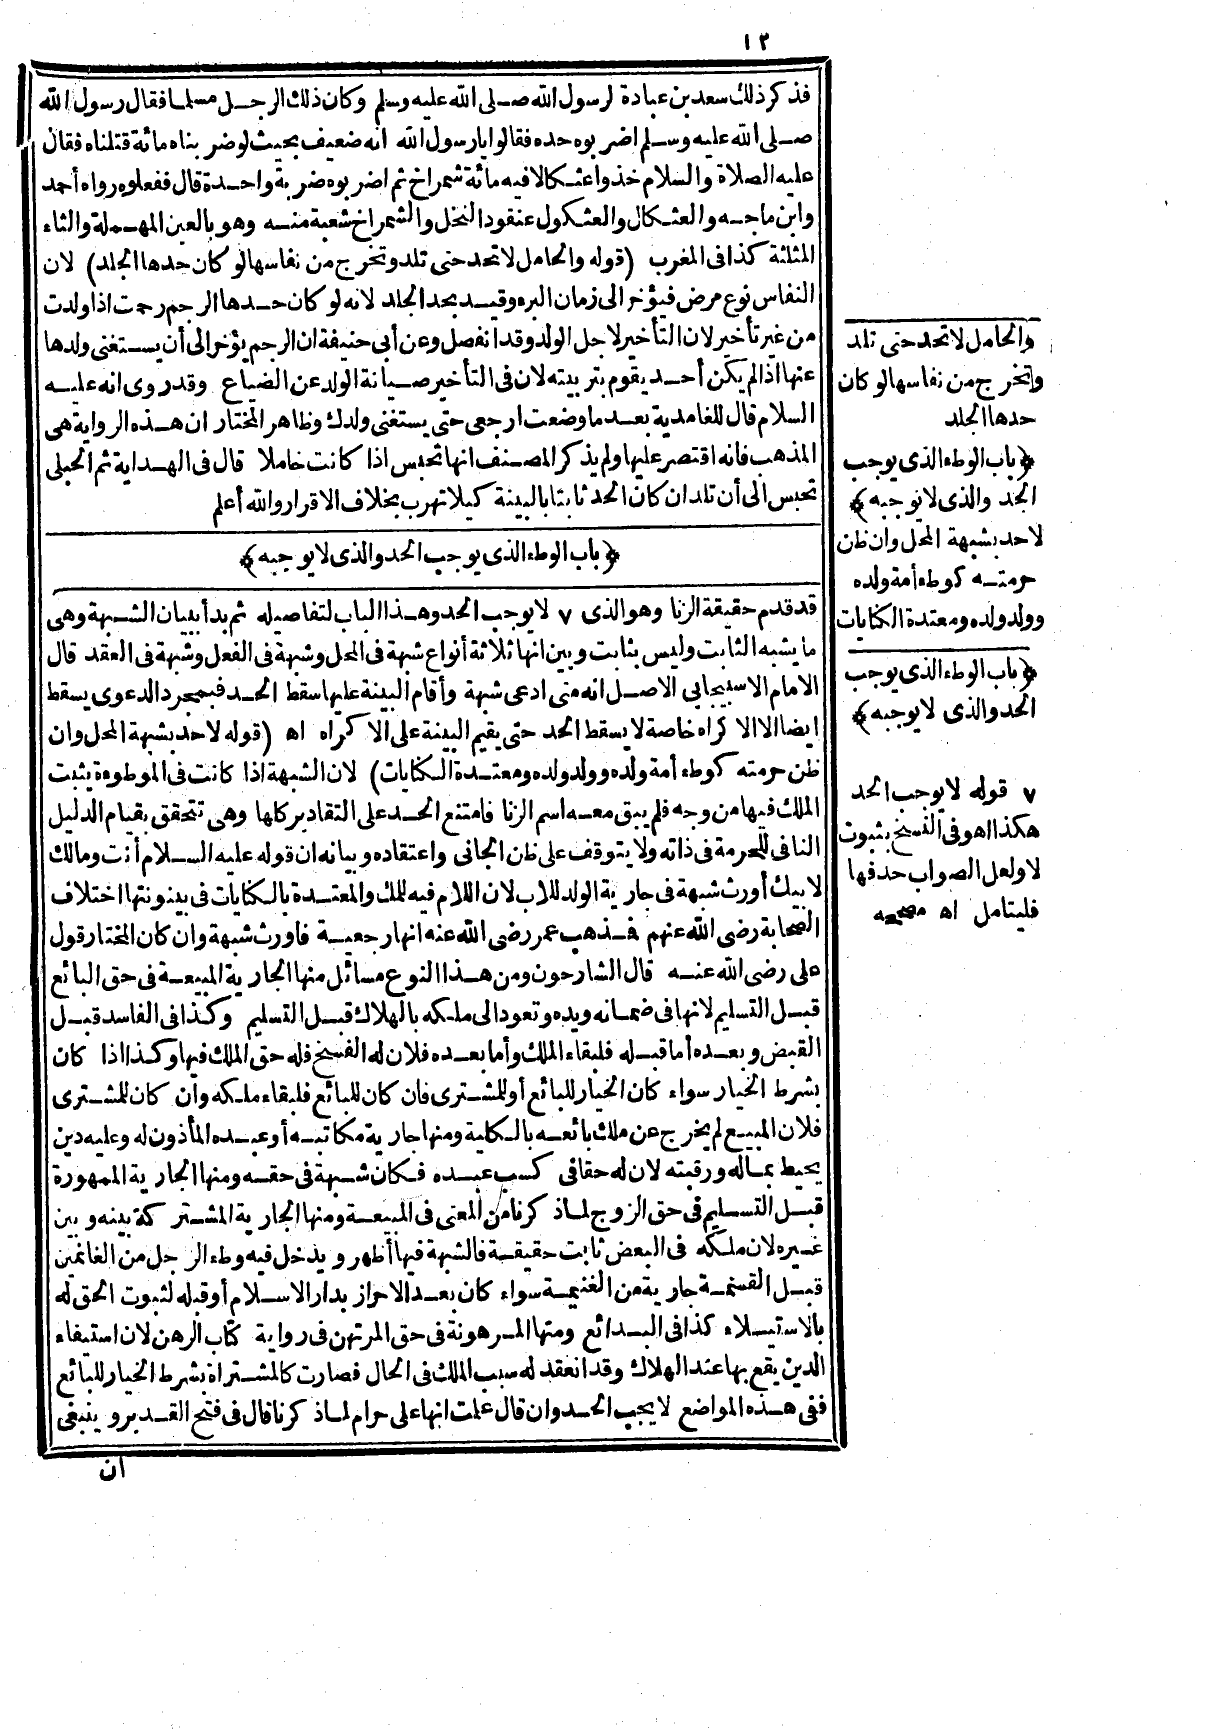 ١٢
فذكر ذلك سعد بن عبادة لرسول الله صلى الله عليه وسلم وكان ذلك الرجل مسلما فقال رسول الله
صلى الله عليه وسلم اضربوه حده فقالوا يا رسول الله انه ضعيف بحيث لو ضربناه مائة قتلناه فقال
عليه الصلاة والسلام خذوا عثكالا فيه مائة شمراخ ثم اضربوه ضربة واحدة قال ففعلوه رواه أحمد
وابن ماجه والعثكال والعثكول عنقود النخل والشمراخ شعبة منه وهو بالعين المهملة والثاء
المثلثة كذا فى المغرب (قوله والحامل لا تحد حتى تلد وتخرج من نفاسها لو كان حدها الجلد) لان
النفاس نوع مرض فيؤخر الى زمان البرء وقيد بحد الجلد لانه لو كان حدها الرجم رجمت اذا ولدت
من غير تأخير لان التأخير لاجل الولد وقد انفصل وعن أبى حنيفة ان الرجم يؤخر الى أن يستغنى ولدها
عنها اذا لم يكن أحد يقوم بتربيته لان فى التأخير صيانة الولد عن الضياع وقد روى انه عليه
السلام قال للغامدية بعد ما وضعت ارجعى حتى يستغنى ولدك وظاهر المختار ان هذه الرواية هى
المذهب فانه اقتصر عليها ولم يذكر المصنف انها تحبس اذا كانت حاملا قال فى الهداية ثم الحبلى
تحبس الى أن تلد ان كان الحد ثابتا بالبينة كيلا تهرب بخلاف الاقرار والله أعلم
﴿باب الوطء الذى يوجب الحد والذى لا يوجبه﴾
قد قدم حقيقة الزنا وهو الذى ٧ لا يوجب الحد وهذا الباب لتفاصيله ثم بدأ ببيان الشبهة وهى
ما يشبه الثابت وليس بثابت وبين انها ثلاثة أنواع شبهة فى المحل وشبهة فى الفعل وشبهة فى العقد قال
الامام الاسبيجابى الاصل انه متى ادعى شبهة وأقام البينة عليها سقط الحد فبمجرد الدعوى يسقط
ايضا الا الاكراه خاصة لا يسقط الحد حتى يقيم البينة على الاكراه اه (قوله لا حد بشبهة المحل وان
ظن حرمته كوطء أمة ولده وولد ولده ومعتدة الكنايات) لان الشبهة اذا كانت فى الموطوءة يثبت
الملك فيها من وجه فلم يبق معه اسم الزنا فامتنع الحد على التقادير كلها وهى تتحقق بقيام الدليل
النافى للحرمة فى ذاته ولا يتوقف على ظن الجانى واعتقاده وبيانه ان قوله عليه السلام أنت ومالك
لابيك أورث شبهة فى جارية الولد للاب لان اللام فيه للملك والمعتدة بالكنايات فى بينونتها اختلاف
الصحابة رضى الله عنهم فذهب عمر رضى الله عنه انها رجعية فاورث شبهة وان كان المختار قول
على رضى الله عنه قال الشارحون ومن هذا النوع مسائل منها الجارية المبيعة فى حق البائع
قبل التسليم لانها فى ضمانه ويده وتعود الى ملكه بالهلاك قبل التسليم وكذا فى الفاسد قبل
القبض وبعده أما قبله فلبقاء الملك وأما بعده فلان له الفسخ فله حق الملك فيها وكذا اذا كان
بشرط الخيار سواء كان الخيار للبائع أو للمشترى فان كان للبائع فلبقاء ملكه وان كان للمشترى
فلان المبيع لم يخرج عن ملك بائعه بالكلية ومنها جارية مكاتبه أو عبده المأذون له وعليه دين
يحيط بماله ورقبته لان له حقا فى كسب عبده فكان شبهة فى حقه ومنها الجارية الممهورة
قبل التسليم فى حق الزوج لما ذكرنا من المعنى فى المبيعة ومنها الجارية المشتركة بينه وبين
غيره لان ملكه فى البعض ثابت حقيقة فالشبهة فيها أظهر ويدخل فيه وطء الرجل من الغانمين
قبل القسمة جارية من الغنيمة سواء كان بعد الاحراز بدار الاسلام أو قبله لثبوت الحق له
بالاستيلاء كذا فى البدائع ومنها المرهونة فى حق المرتهن فى رواية كتاب الرهن لان استيفاء
الدين يقع بها عند الهلاك وقد انعقد له سبب الملك فى الحال فصارت كالمشتراة بشرط الخيار للبائع
ففى هذه المواضع لا يجب الحد وان قال علمت انها على حرام لما ذكرنا قال فى فتح القدير وينبغى
ان
والحامل لا تحد حتى تلد
وتخرج من نفاسها لو كان
حدها الجلد
﴿باب الوطء الذى يوجب
الحد والذى لا يوجبه﴾
لا حد بشبهة المحل وان ظن
حرمته كوطء أمة ولده
وولد ولده ومعتدة الكنايات
﴿باب الوطء الذى يوجب
الحد والذى لا يوجبه﴾
٧ قوله لا يوجب الحد
هكذا هو فى النسخ بثبوت
لا ولعل الصواب حذفها
فليتامل اه مصححه